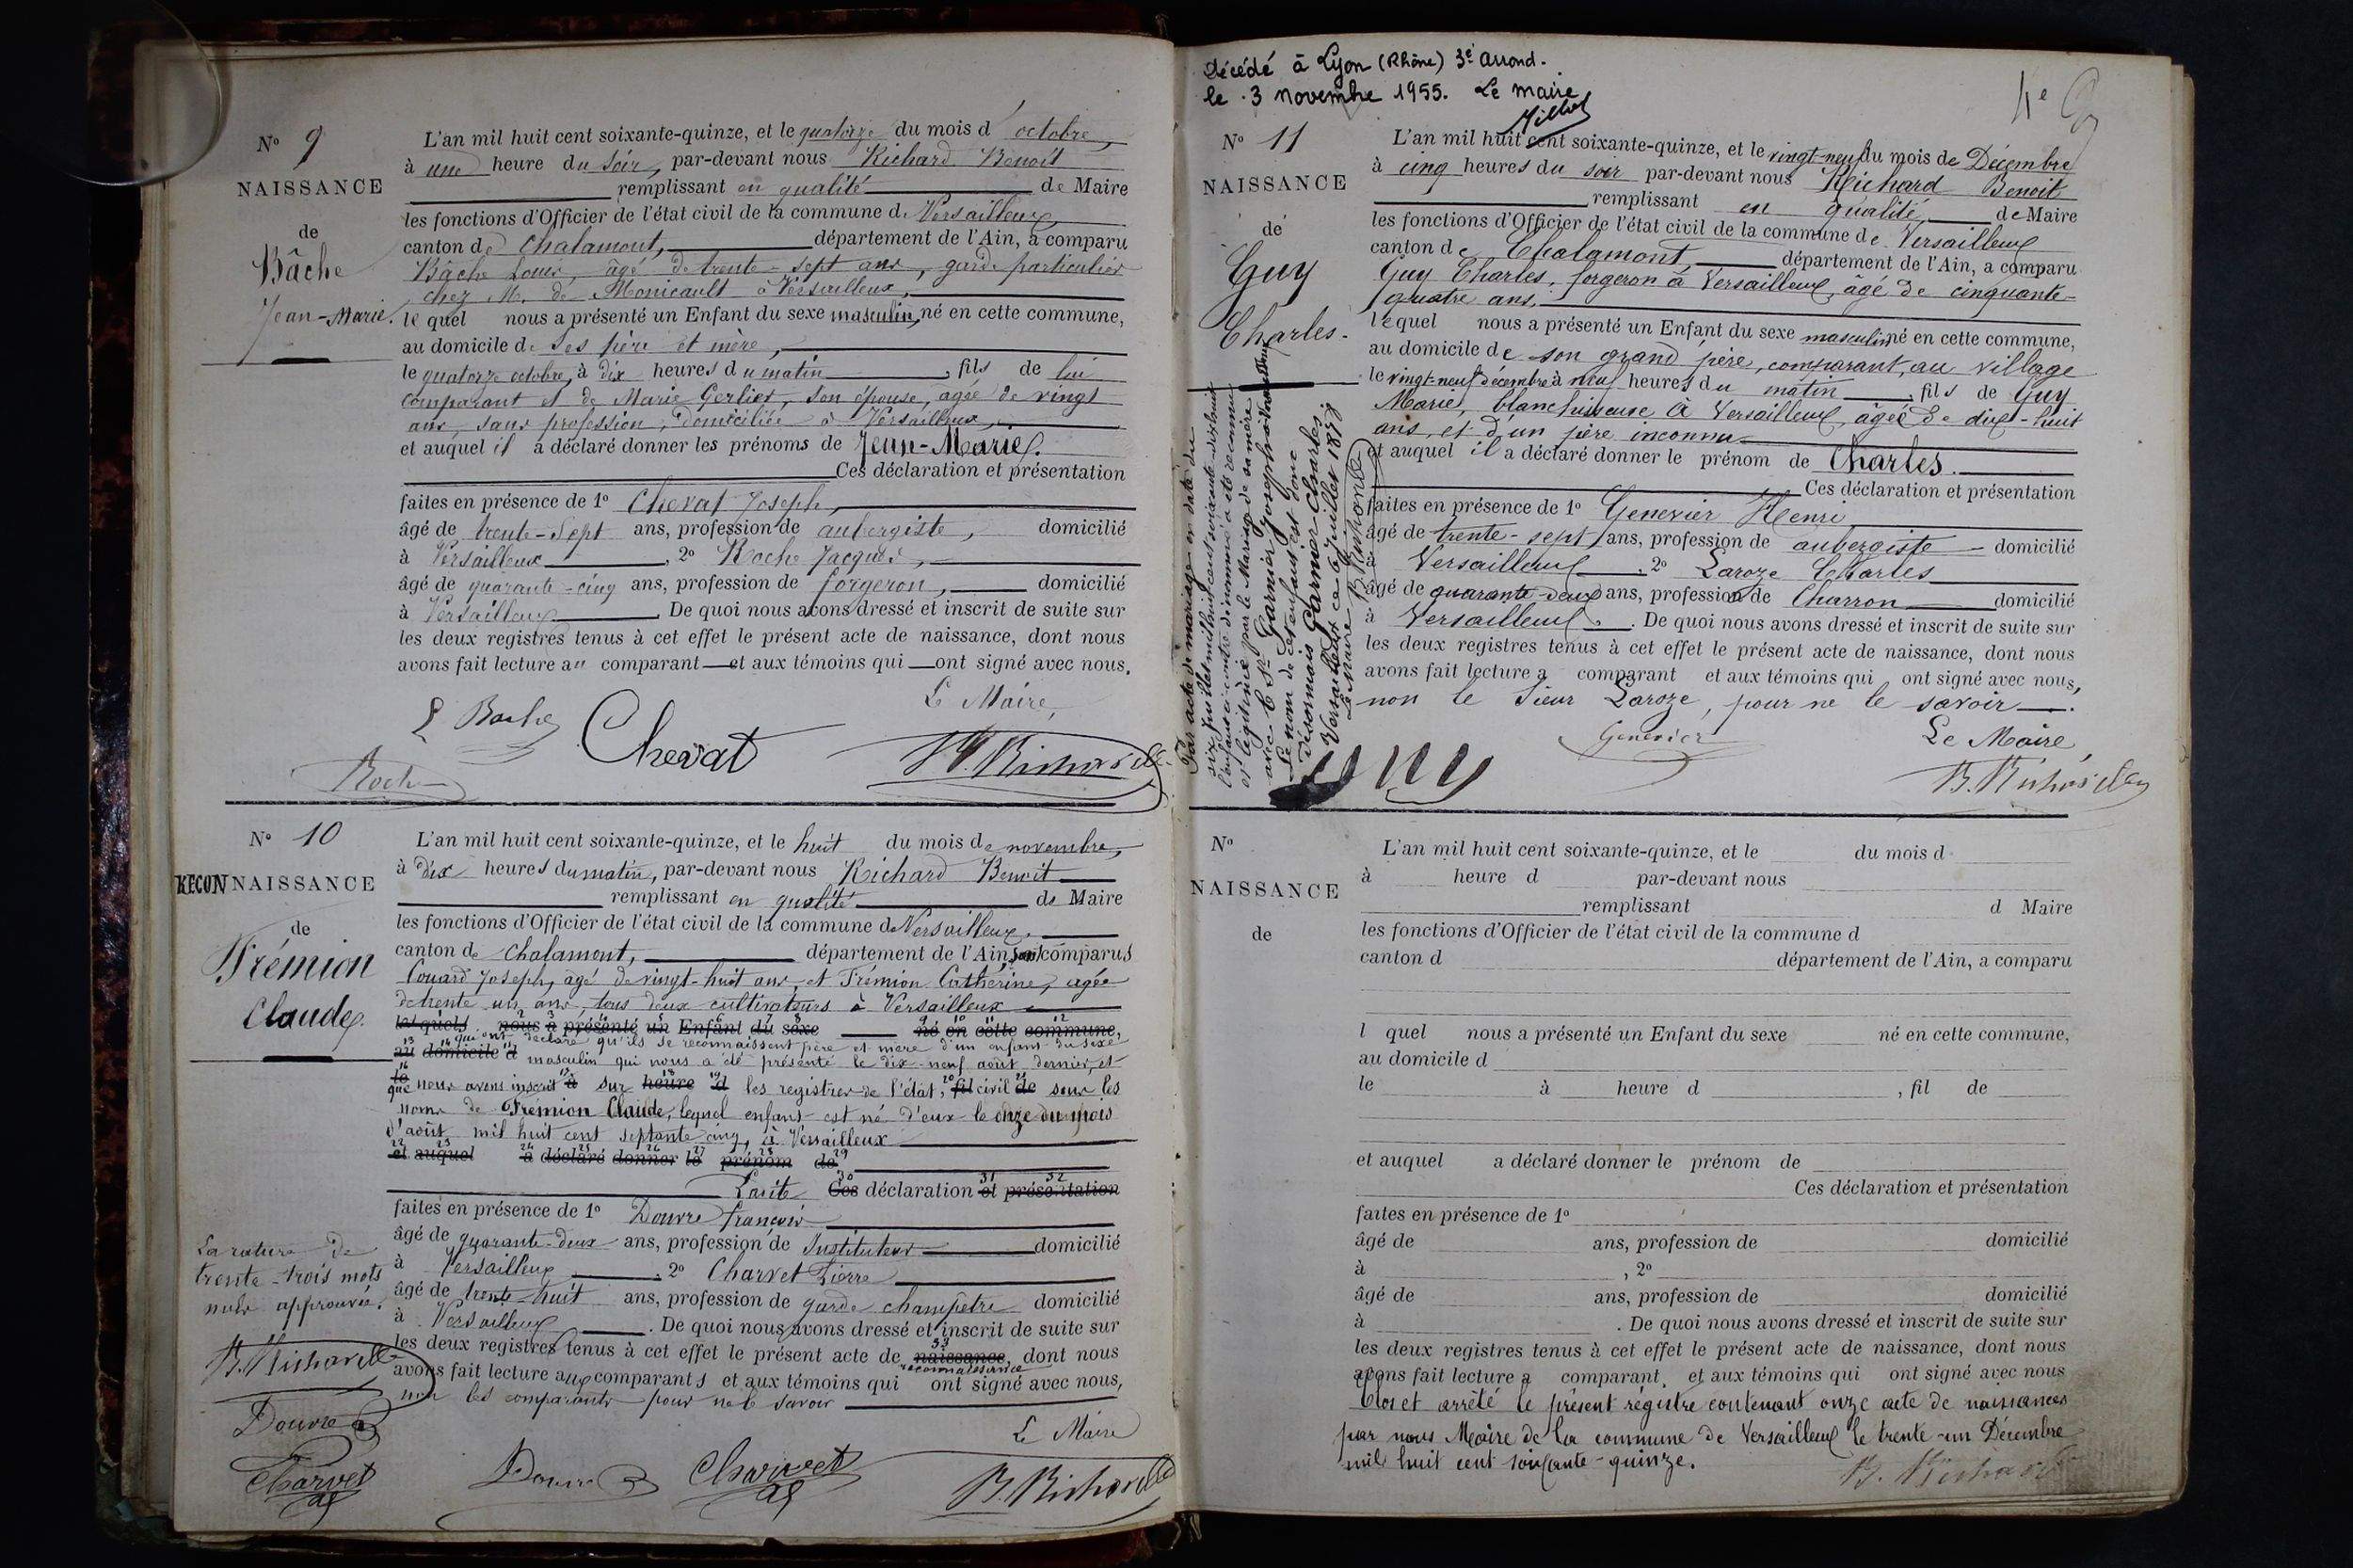 N° 9
NAISSANCE
de
Bâche
Jean-Marie.
L'an mil huit cent soixante-quinze, et le quatorze du mois d'octobre,
à une heure du soir, par-devant nous Richard Benoît
remplissant en qualité de Maire
les fonctions d'Officier de l'état civil de la commune de Versailleux,
canton de Chalamont, département de l'Ain, a comparu
Bâche Louis, âgé de trente-sept ans, garde particulier
chez M. de Monicault à Versailleux,
le quel nous a présenté un Enfant du sexe masculin, né en cette commune,
au domicile de ses père et mère,
le quatorze octobre, à dix heures du matin, fils de lui
comparant et de Marie Gerliet, son épouse, âgée de vingt
ans, sans profession, domiciliée à Versailleux,
et auquel il a déclaré donner les prénoms de Jean-Marie.
Ces déclaration et présentation
faites en présence de 1° Chevat Joseph,
âgé de trente-sept ans, profession de aubergiste, domicilié
à Versailleux, 2° Roche Jacques,
âgé de quarante-cinq ans, profession de forgeron, domicilié
à Versailleux. De quoi nous avons dressé et inscrit de suite sur
les deux registres tenus à cet effet le présent acte de naissance, dont nous
avons fait lecture au comparant et aux témoins qui ont signé avec nous.
Le Maire,
L Bache Chevat B. Richard
Roche
N° 10
RECONNAISSANCE
de
Trémion
Claude.
L'an mil huit cent soixante-quinze, et le huit du mois de novembre,
à dix heures du matin, par-devant nous Richard Benoit
remplissant en qualité de Maire
les fonctions d'Officier de l'état civil de la commune de Versailleux.
canton de Chalamont, département de l'Ain, sont comparus
Couard Joseph, âgé de vingt-huit ans, et Trémion Catherine, agée
de trente un ans, tous deux cultivateurs à Versailleux
lesquels nous a présenté un Enfant du sexe né en cette commune,
qui ont déclaré qu'ils se reconnaissent père et mère d'un enfant du sexe
au domicile d masculin qui nous a été présenté le dix-neuf août dernier, et
le que nous avons inscrit à sur heure d les registres de l'état, fil civil de sous les
noms de Trémion Claude, lequel enfant est né d'eux le onze du mois
d'août mil huit cent septante cinq, à Versailleux
et auquel a déclaré donner le prénom de
Ces déclaration et présentation
faites en présence de 1° Douvre françois
âgé de quarante-deux ans, profession de Instituteur domicilié
à Versailleux, 2° Charvet Pierre
âgé de trente-huit ans, profession de garde champêtre domicilié
à Versailleux. De quoi nous avons dressé et inscrit de suite sur
les deux registres tenus à cet effet le présent acte de naissance, dont nous
reconnaissance
avons fait lecture aux comparants et aux témoins qui ont signé avec nous,
non les comparants pour ne le savoir
La rature de
trente-trois mots
nuls approuvée.
B. Richard
Douvre
Charvet
Le Maire
Douvre Charvet B. Richard
Décédé à Lyon (Rhône) 3e arrond.
le 3 novembre 1955. Le maire
N° 11
NAISSANCE
de
Guy
Charles.
L'an mil huit cent soixante-quinze, et le vingt-neuf du mois de Décembre
à cinq heures du soir par-devant nous Richard Benoit
remplissant en qualité de Maire
les fonctions d'Officier de l'état civil de la commune de Versailleux
canton de Chalamont, département de l'Ain, a comparu
Guy Charles, forgeron à Versailleux, âgé de cinquante-
quatre ans,
lequel nous a présenté un Enfant du sexe masculin né en cette commune,
au domicile de son grand père, comparant, au village
le vingt-neuf décembre à neuf heures du matin, fils de Guy
Marie, blanchisseuse à Versailleux, âgée de dix-huit
ans, et d'un père inconnu
et auquel il a déclaré donner le prénom de Charles.
Ces déclaration et présentation
faites en présence de 1° Genevier Henri
âgé de trente-sept ans, profession de aubergiste domicilié
à Versailleux, 2° Laroze Charles
âgé de quarante-deux ans, profession de Charron domicilié
à Versailleux. De quoi nous avons dressé et inscrit de suite sur
les deux registres tenus à cet effet le présent acte de naissance, dont nous
avons fait lecture a comparant et aux témoins qui ont signé avec nous,
non le sieur Laroze, pour ne le savoir.
Par acte de mariage en date du
six juillet mil huit cent soixante-dix-huit
l'enfant ci-contre dénommé a été reconnu
et légitimé par le Mariage de sa mère
avec le Sr Garnier Joseph
Le nom de cet enfant est donc
désormais Garnier Charles
Versailleux ce juillet 1878
Le Maire B. Richard
Guy Genevier
Le Maire
B. Richard
N°
NAISSANCE
de
L'an mil huit cent soixante-quinze, et le du mois d
à heure d par-devant nous
remplissant d Maire
les fonctions d'Officier de l'état civil de la commune d
canton d département de l'Ain, a comparu
l quel nous a présenté un Enfant du sexe né en cette commune,
au domicile d
le à heure d , fil de
et auquel a déclaré donner le prénom de
Ces déclaration et présentation
faites en présence de 1°
âgé de ans, profession de domicilié
à , 2°
âgé de ans, profession de domicilié
à . De quoi nous avons dressé et inscrit de suite sur
les deux registres tenus à cet effet le présent acte de naissance, dont nous
avons fait lecture a comparant, et aux témoins qui ont signé avec nous
Clos et arrêté le présent registre contenant onze acte de naissances
par nous Maire de la commune de Versailleux le trente-un Décembre
mil huit cent soixante-quinze.
B. Richard